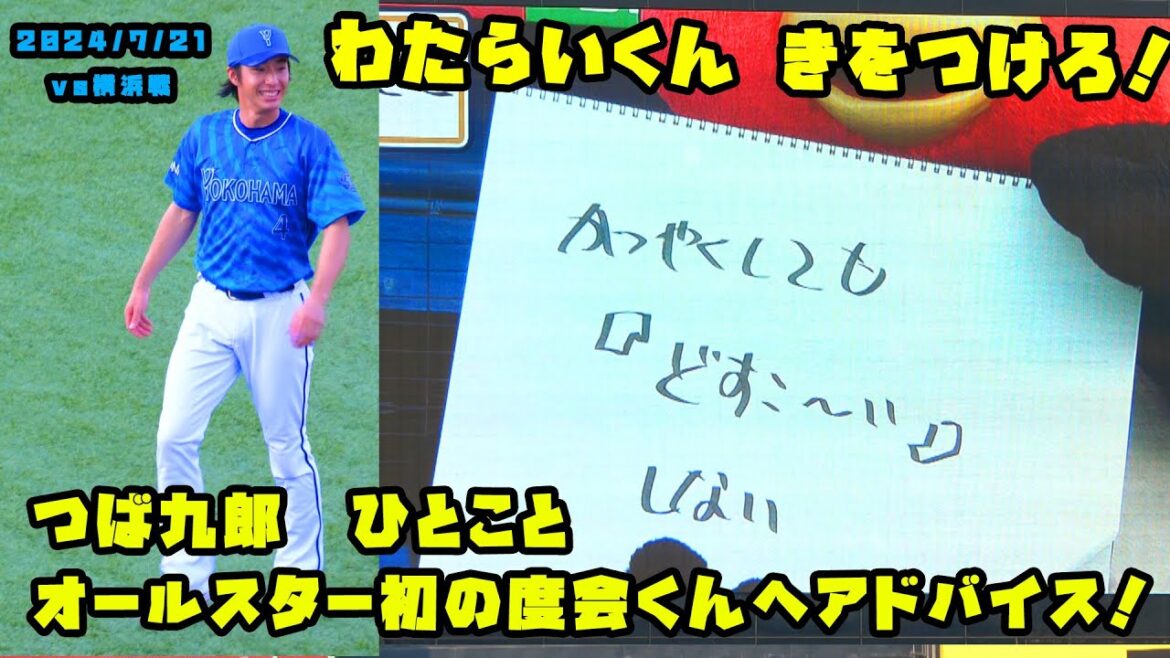 2024/7/21
vs横浜戦
わたらいくん きをつけろ!
YOKOHAMA
4
かつやくしても
『どすこ〜い』
しない
つば九郎 ひとこと
オールスター初の度会くんへアドバイス!